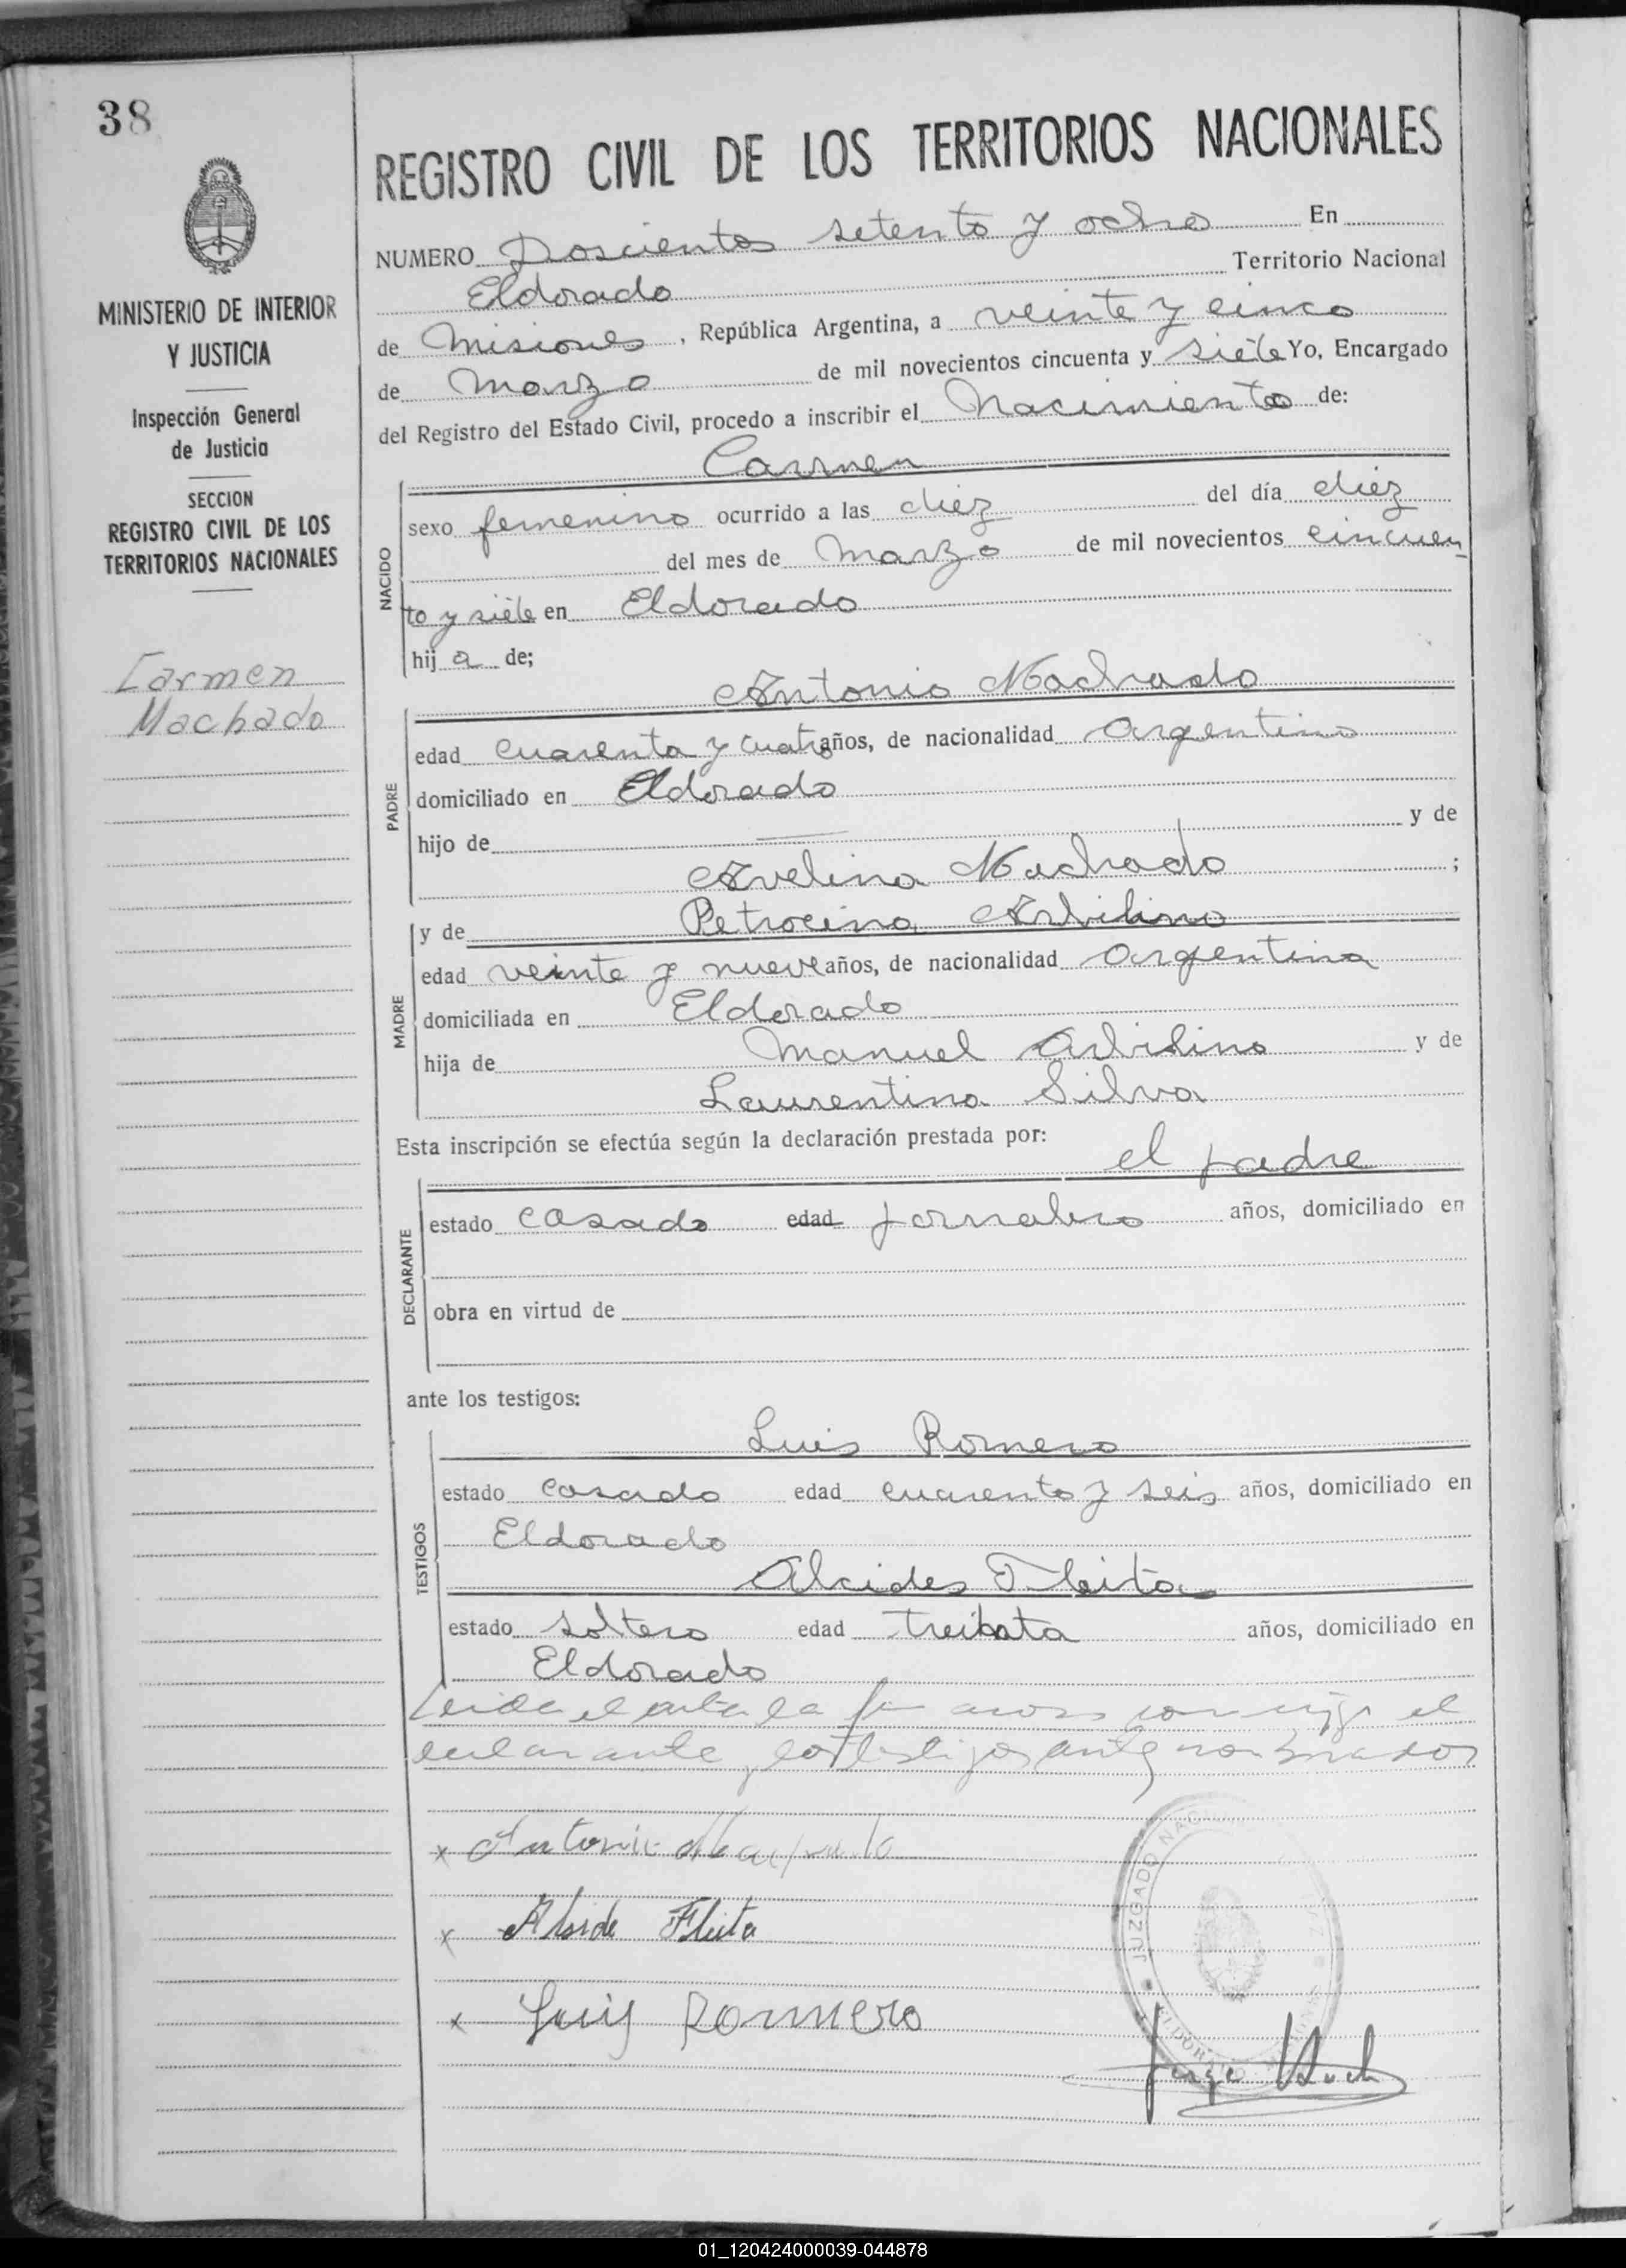 38
REGISTRO CIVIL DE LOS TERRITORIOS NACIONALES
MINISTERIO DE INTERIOR
Y JUSTICIA
Inspección General
de Justicia
SECCION
REGISTRO CIVIL DE LOS
TERRITORIOS NACIONALES
Carmen
Machado
NUMERO Doscientos setenta y ocho En
Eldorado Territorio Nacional
de Misiones, República Argentina, a veinte y cinco
de Marzo de mil novecientos cincuenta y siete Yo, Encargado
del Registro del Estado Civil, procedo a inscribir el Nacimiento de:
Carmen
NACIDO
sexo femenino ocurrido a las diez del día diez
del mes de Marzo de mil novecientos cincuen
ta y siete en Eldorado
hij a de;
Antonio Machado
PADRE
edad cuarenta y cuatro años, de nacionalidad Argentino
domiciliado en Eldorado
hijo de y de
Avelina Machado ;
y de Petrocina Arbilino
MADRE
edad veinte y nueve años, de nacionalidad Argentina
domiciliada en Eldorado
hija de Manuel Arbilino y de
Laurentina Silva
Esta inscripción se efectúa según la declaración prestada por:
el padre
DECLARANTE
estado casado edad jornalero años, domiciliado en
obra en virtud de
ante los testigos:
Luis Romero
TESTIGOS
estado casado edad cuarenta y seis años, domiciliado en
Eldorado
Alcides Fleitas
estado soltero edad años, domiciliado en
Eldorado
Leida el acta la conmigo el
declarante y los testigos antes nombrados
x Antonio Machado
x Alside Fleita
x Luis Rommero
JUZGADO
ELDORADO
Jorge
01_120424000039-044878